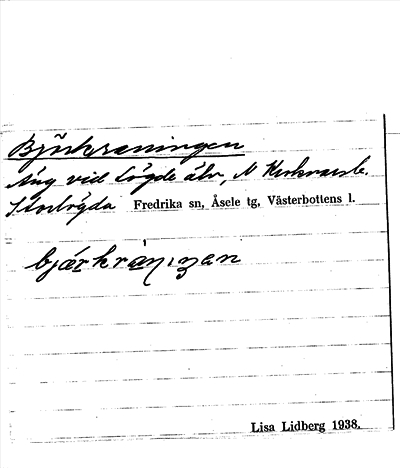 Björkraningen
Äng vid Lögde älv, N
Storlögda Fredrika sn, Åsele tg, Västerbottens l.
bjárkràṇıŋen
Lisa Lidberg 1938.